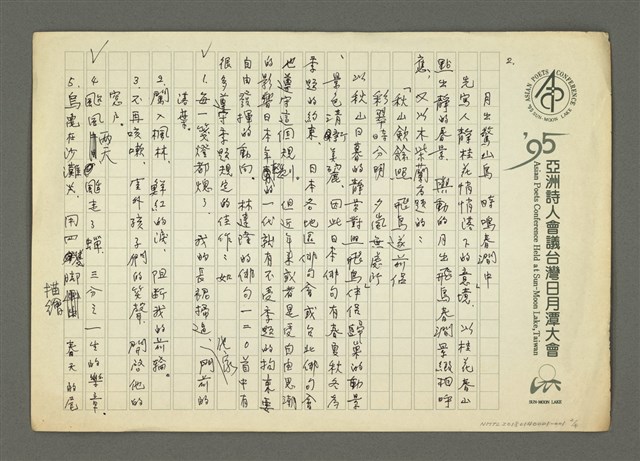 ASIAN POETS CONFERENCE
'95 亞洲詩人會議台灣日月潭大會
Asian Poets Conference Held at Sun-Moon Lake, Taiwan
SUN-MOON LAKE
2.
月出驚山鳥 時鳴春澗中
先寫人静桂花悄悄落下的意境,以桂花春山
點出静的春景 與動的月出飛鳥春澗景緻相呼
應,又以木紫蘭為題的:
「秋山斂餘照 飛鳥逐前侶
彩翠時分明 夕嵐無處所
以秋山日暮的静景對照飛鳥伴侶歸巢的動景
、景色清新美麗。因此日本俳句有春夏秋冬
季題的約束。日本各地區俳句會或台北俳句會
也遵守這個規則。但近年來或者是受自由思潮
的影響日本年輕的一代就有不受季題的拘束要
自由發揮的動向,林建隆的俳句一二0首中有
很多遵守季題規定的佳作:如
1.每一盞燈都熄了,我的長裙掃進/門前的
落葉。
2.闖入楓林,鮮紅的淚,阻斷我的前輪。
3.不再咳嗽,室外孩子們的笑聲,開啓他的
窗戶。
4.颱風兩天颳走了蟬,三分之一生的樂章。
5.烏龜在沙灘上,用四隻脚描繪春天的尾